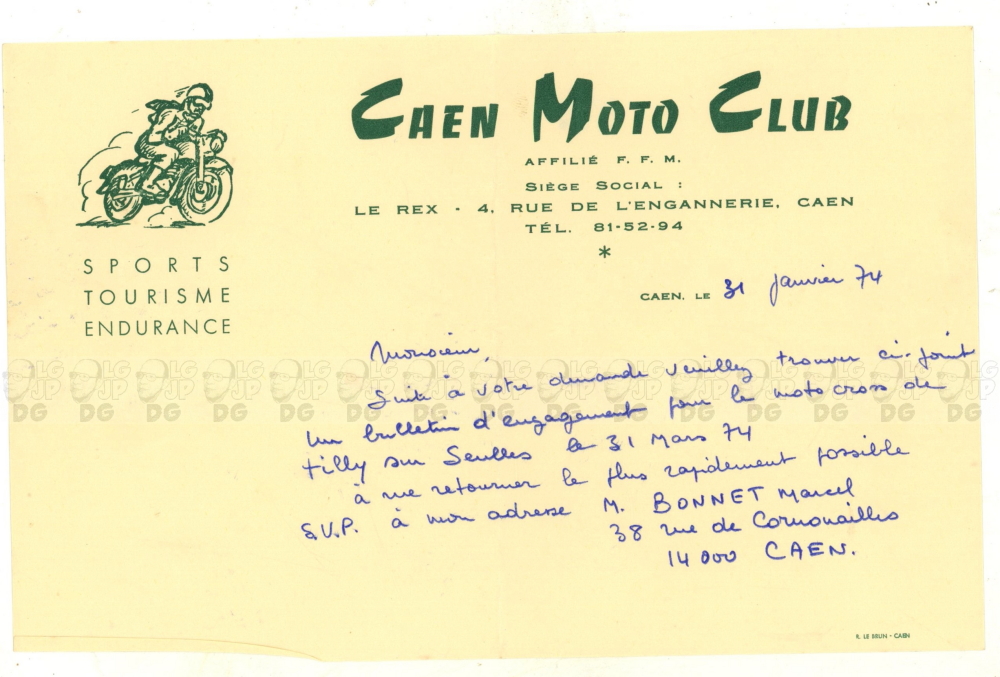 CAEN MOTO CLUB
AFFILIÉ F. F. M.
SIÈGE SOCIAL :
LE REX - 4, RUE DE L'ENGANNERIE, CAEN
TÉL. 81-52-94
*
SPORTS
TOURISME
ENDURANCE
CAEN, LE 31 janvier 74
Monsieur,
Suite à votre demande veuillez trouver ci-joint
un bulletin d'engagement pour le motocross de
tilly sur Seulles le 31 Mars 74
à me retourner le plus rapidement possible
S.V.P. à mon adresse M. BONNET Marcel
38 rue de Cornouailles
14000 CAEN.
R. LE BRUN - CAEN
DG DG DG DG DG DG DG DG DG DG DG